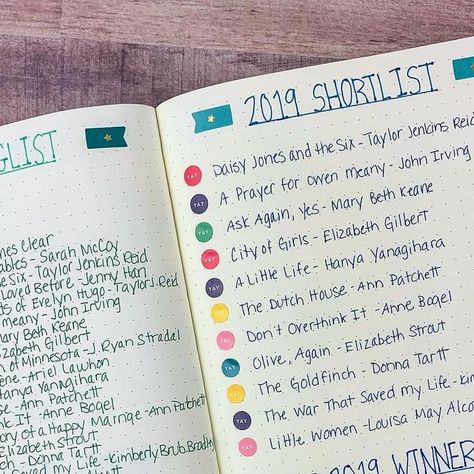 GLIST
nes clear
ables - Sarah McCoy
he Six - Taylor Jenkins Reid
Loved Before - Jenny Han
ds of Evelyn Hugo - Taylor J. Reid
meany - John Irving
ary Beth Keane
zabeth Gilbert
n of Minnesota - J. Ryan Stradal
ene - Ariel Lawhon
nya Yanagihara
se - Ann Patchett
k It - Anne Bogel
ory of a Happy Marriage - Ann Patchett
Elizabeth Strout
n - Donna Tartt
aved my Life - Kimberly Brub. Bradley
2019 SHORTLIST
YAY Daisy Jones and the Six - Taylor Jenkins Reid
YAY A Prayer for Owen Meany - John Irving
YAY Ask Again, Yes - Mary Beth Keane
YAY City of Girls - Elizabeth Gilbert
YAY A Little Life - Hanya Yanagihara
YAY The Dutch House - Ann Patchett
YAY Don't Overthink It - Anne Bogel
YAY Olive, Again - Elizabeth Strout
YAY The Goldfinch - Donna Tartt
YAY The War That Saved my Life - Kim
YAY Little Women - Louisa May Alco
2019 WINNER